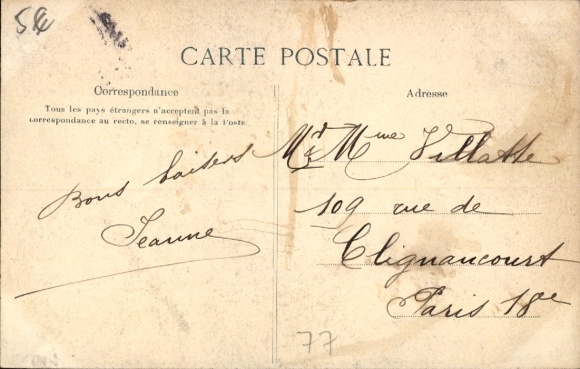 5€
CARTE POSTALE
Correspondance
Tous les pays étrangers n'acceptent pas la
correspondance au recto, se renseigner à la Poste.
Bons baisers
Jeanne
Adresse
Mr & Mme Villatte
109 rue de
Clignancourt
Paris 18e
77